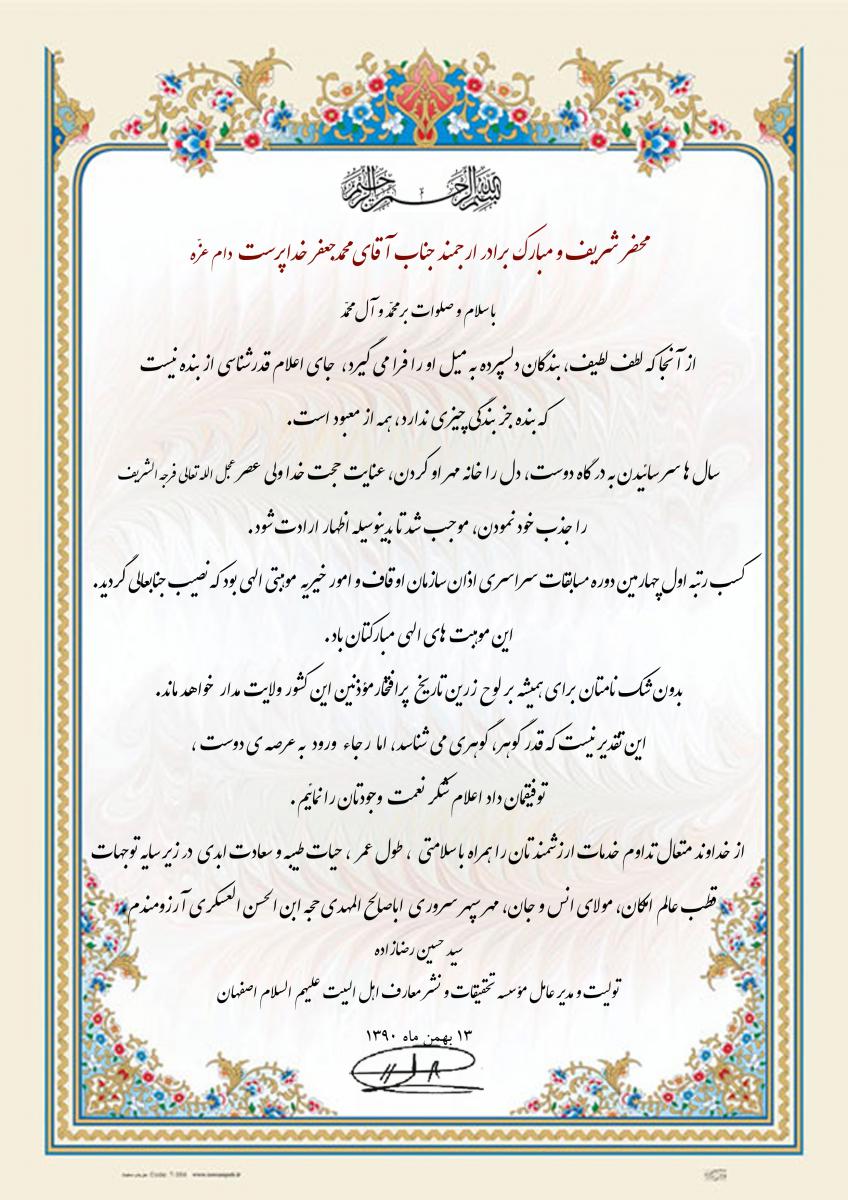 بسم الله الرحمن الرحیم
محضر شریف و مبارک برادر ارجمند جناب آقای محمدجعفر خداپرست دام عزّه
با سلام و صلوات بر محمّد و آل محمّد
از آنجا که لطف لطیف، بندگان دلسپرده به میل او را فرا می گیرد، جای اعلام قدرشناسی از بنده نیست
که بنده جز بندگی چیزی ندارد، همه از معبود است.
سال ها سر سائیدن به درگاه دوست، دل را خانه مهر او کردن، عنایت حجت خدا ولی عصر عجل الله تعالی فرجه الشریف
را جذب خود نمودن، موجب شد تا بدینوسیله اظهار ارادت شود.
کسب رتبه اول چهارمین دوره مسابقات سراسری اذان سازمان اوقاف و امور خیریه موهبتی الهی بود که نصیب جنابعالی گردید.
این موهبت های الهی مبارکتان باد.
بدون شک نامتان برای همیشه بر لوح زرین تاریخ پرافتخار مؤذنین این کشور ولایت مدار خواهد ماند.
این تقدیر نیست که قدر گوهر، گوهری می شناسد، اما رجاء ورود به عرصه ی دوست ،
توفیقمان داد اعلام شکر نعمت وجودتان را نمائیم .
از خداوند متعال تداوم خدمات ارزشمندتان را همراه با سلامتی ، طول عمر ، حیات طیبه و سعادت ابدی در زیر سایه توجهات
قطب عالم امکان، مولای انس و جان، مهر سپهر سروری اباصالح المهدی حجه ابن الحسن العسکری آرزومندم
سید حسین رضازاده
تولیت و مدیر عامل مؤسسه تحقیقات و نشر معارف اهل البیت علیهم السلام اصفهان
۱۳ بهمن ماه ۱۳۹۰